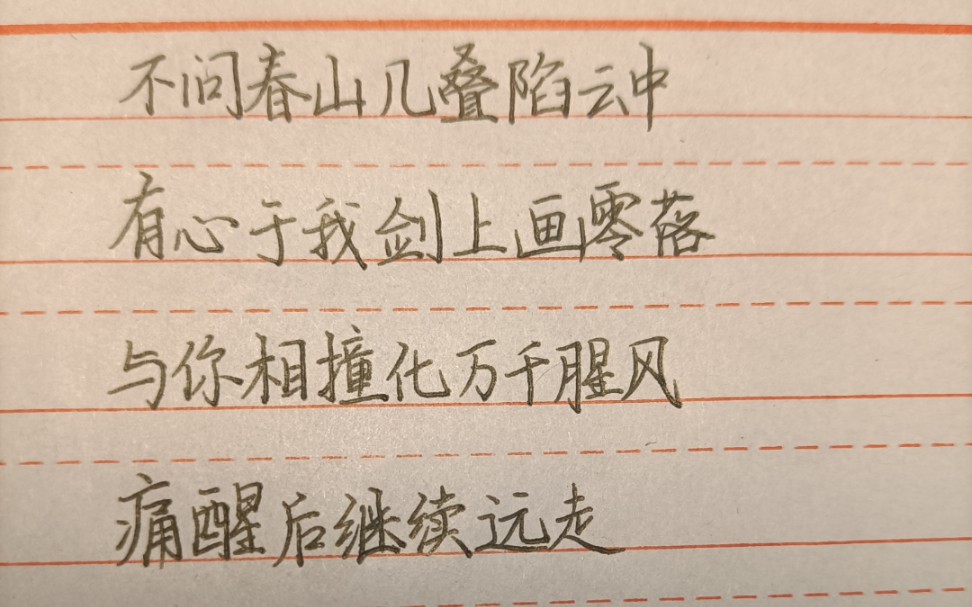 不问春山几叠陷云中
有心于我剑上画零落
与你相撞化万千腥风
痛醒后继续远走